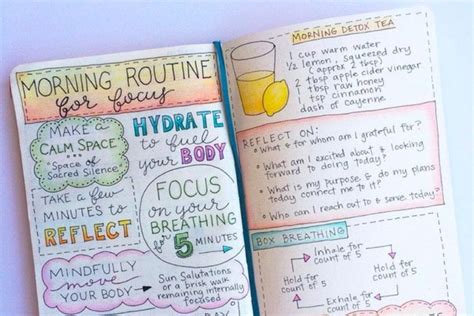 MORNING ROUTINE
for focus
MAKE A
CALM SPACE
*Space of
Sacred Silence
HYDRATE
to fuel
your BODY
TAKE A FEW
MINUTES TO
REFLECT
FOCUS
on your
BREATHING
for 5 MINUTES
MINDFULLY
move
YOUR BODY
Sun Salutations
or a brisk walk
remaining internally
focused
MORNING DETOX TEA
1 cup warm water
1/2 lemon, squeezed dry
(approx 2 tbsp)
2 tbsp apple cider vinegar
1 tbsp raw honey
1 tsp cinnamon
dash of cayenne
REFLECT ON:
• What & for whom am I grateful for?
• What am I excited about & looking
forward to doing today?
• What is my purpose & do my plans
today connect me to it?
• Who can I reach out to & serve today?
BOX BREATHING
Inhale for
count of 5
Hold for
count of 5
Hold for
count of 5
Exhale for
count of 5